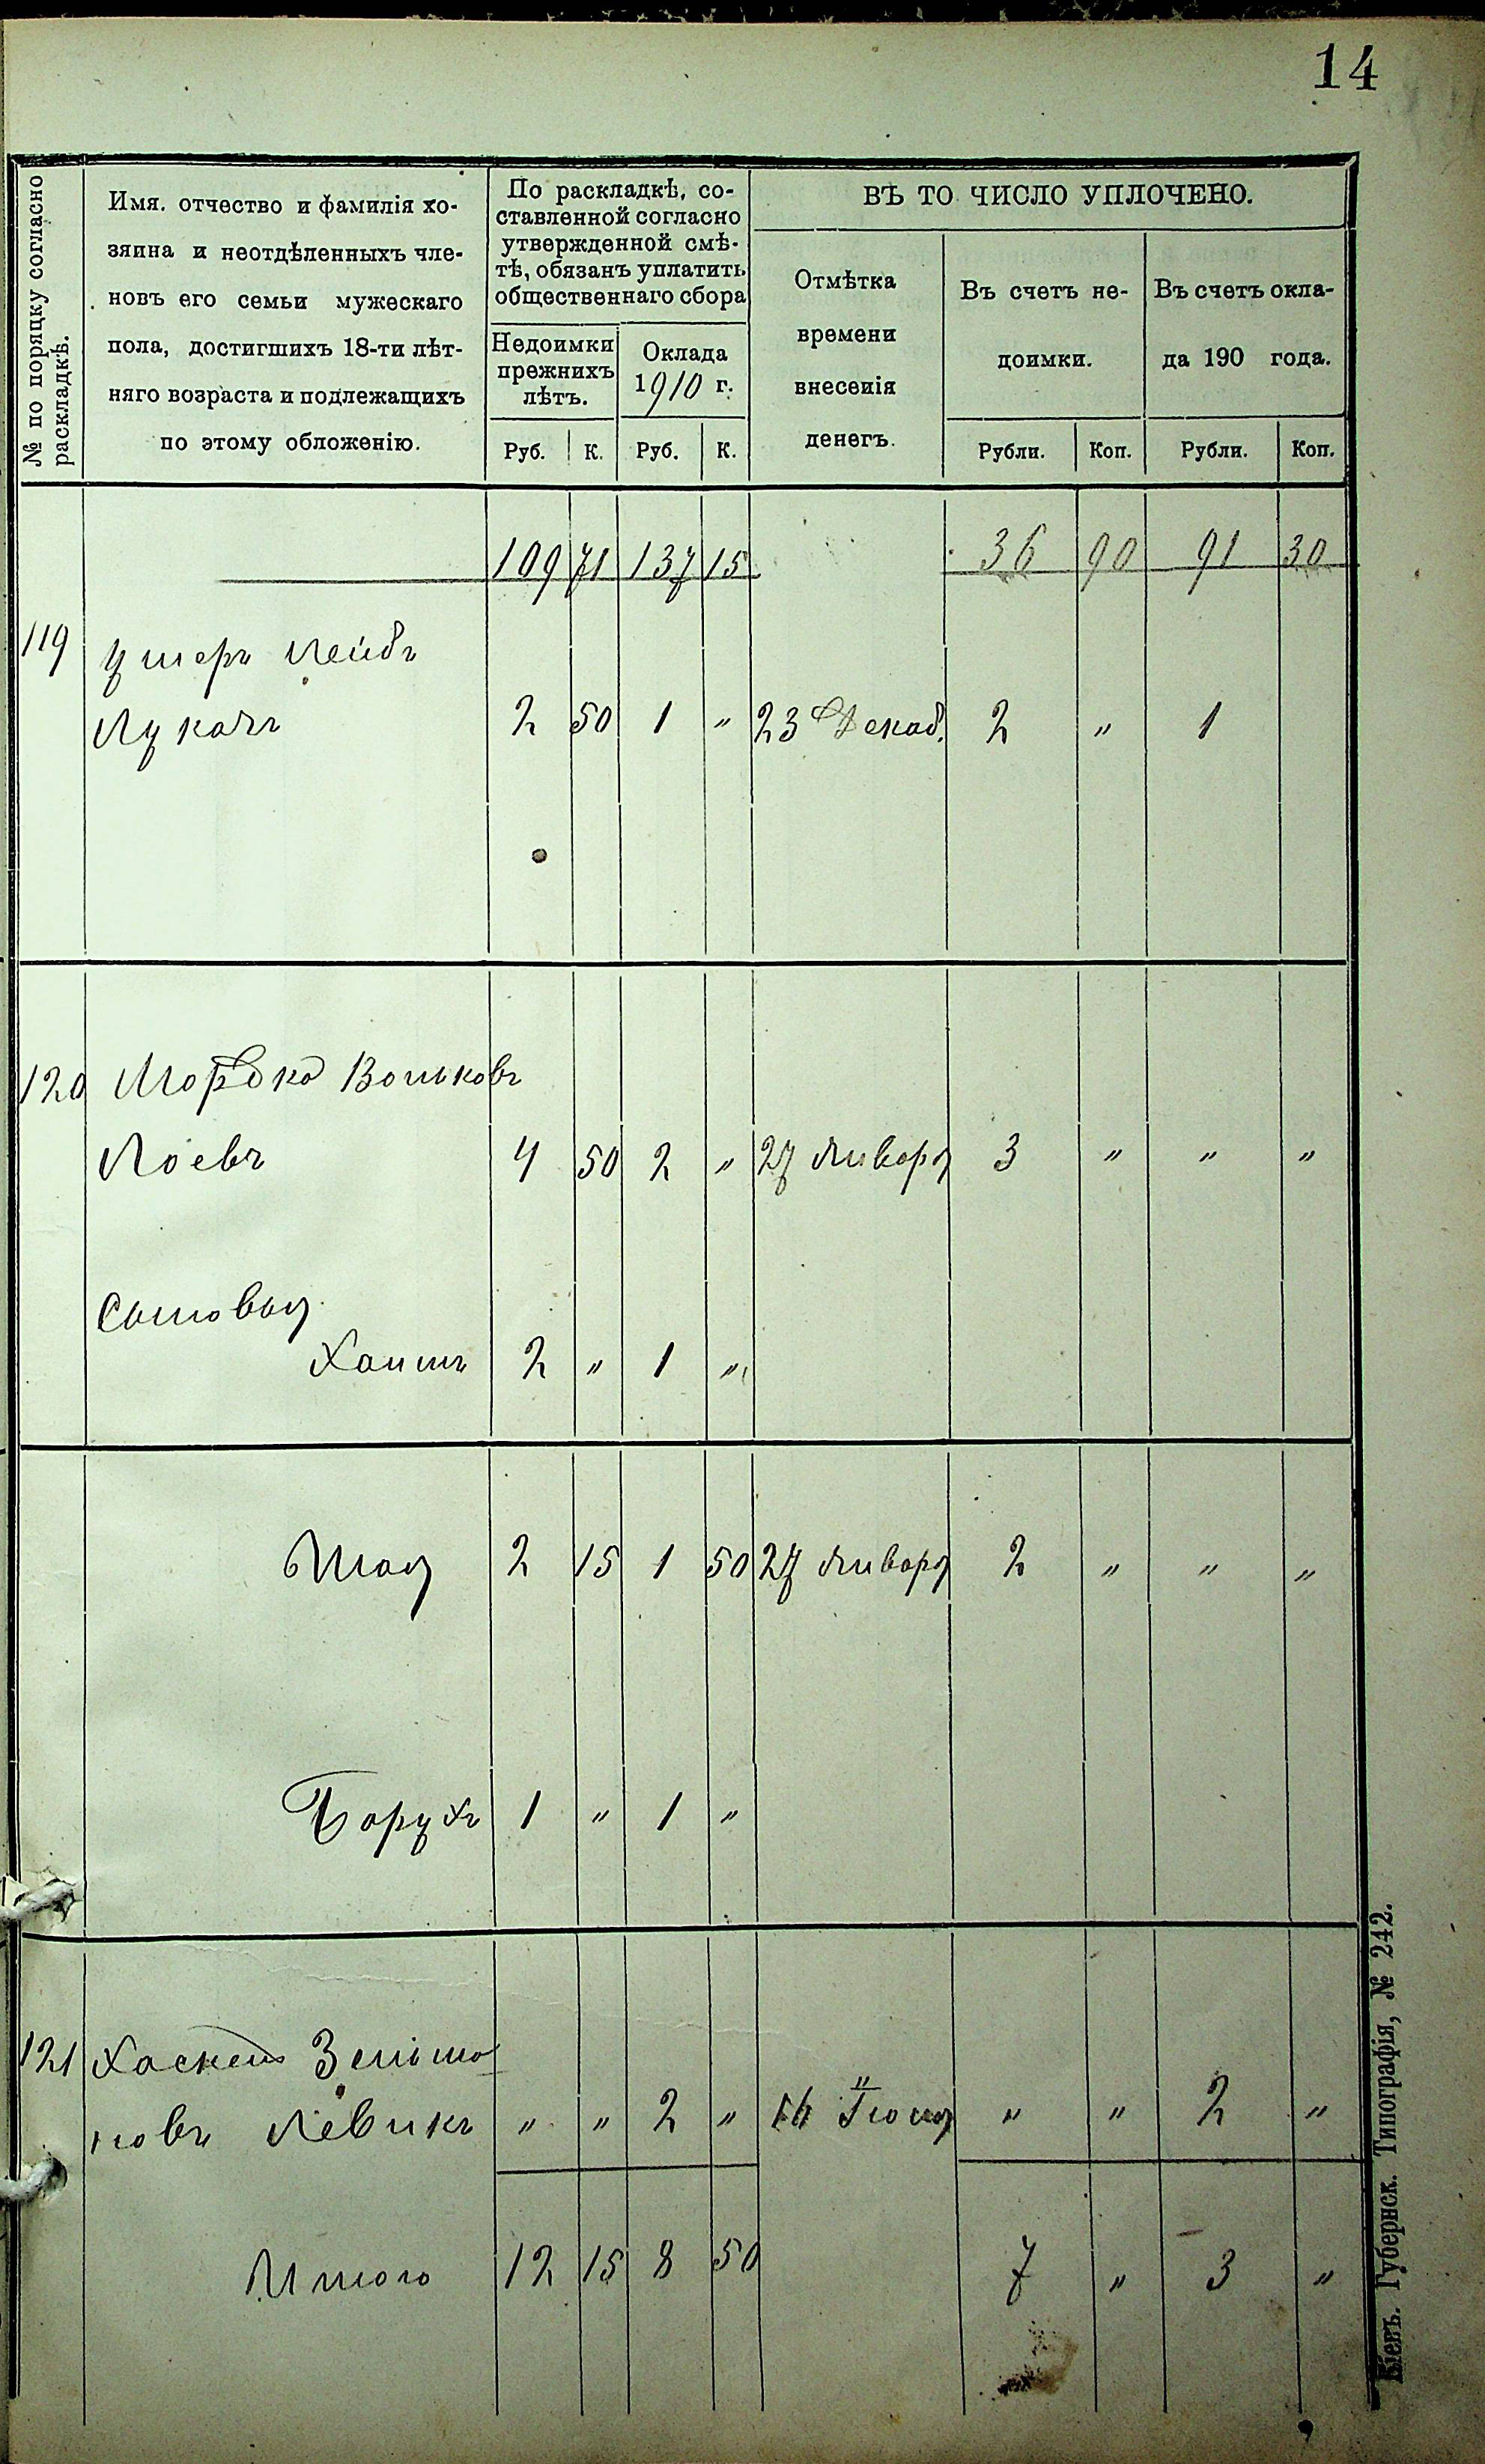 14
№ по поряцку согласно
раскладкѣ.
Имя. отчество и фамилія хо-
зяина и неотдѣленныхъ чле-
новъ его семьи мужескаго
пола, достигшихъ 18-ти лѣт-
няго возраста и подлежащихъ
по этому обложенію.
По раскладкѣ, со-
ставленной согласно
утвержденной смѣ-
тѣ, обязанъ уплатить
общественнаго сбора
Недоимки
прежнихъ
лѣтъ.
Оклада
1910 г.
Руб. К. Руб. К.
ВЪ ТО ЧИСЛО УПЛОЧЕНО.
Отмѣтка
времени
внесенія
денегъ.
Въ счетъ не-
доимки.
Въ счетъ окла-
да 190 года.
Рубли. Коп. Рубли. Коп.
109 71 137 15 36 90 91 30
119 Ушеръ Лейбъ
Лукачъ 2 50 1 " 23 Декаб. 2 " 1
120 Мордко Вольковъ
Лоевъ 4 50 2 " 27 Января 3 " " "
Сыновья
Хаимъ 2 " 1 "
Шая 2 15 1 50 27 Января 2 " " "
Борухъ 1 " 1 "
121 Хаскель Зельма
новъ Левикъ " " 2 " 16 Іюня " " 2 "
Итого 12 15 8 50 7 " 3 "
Кіевъ. Губернск. Типографія, № 242.